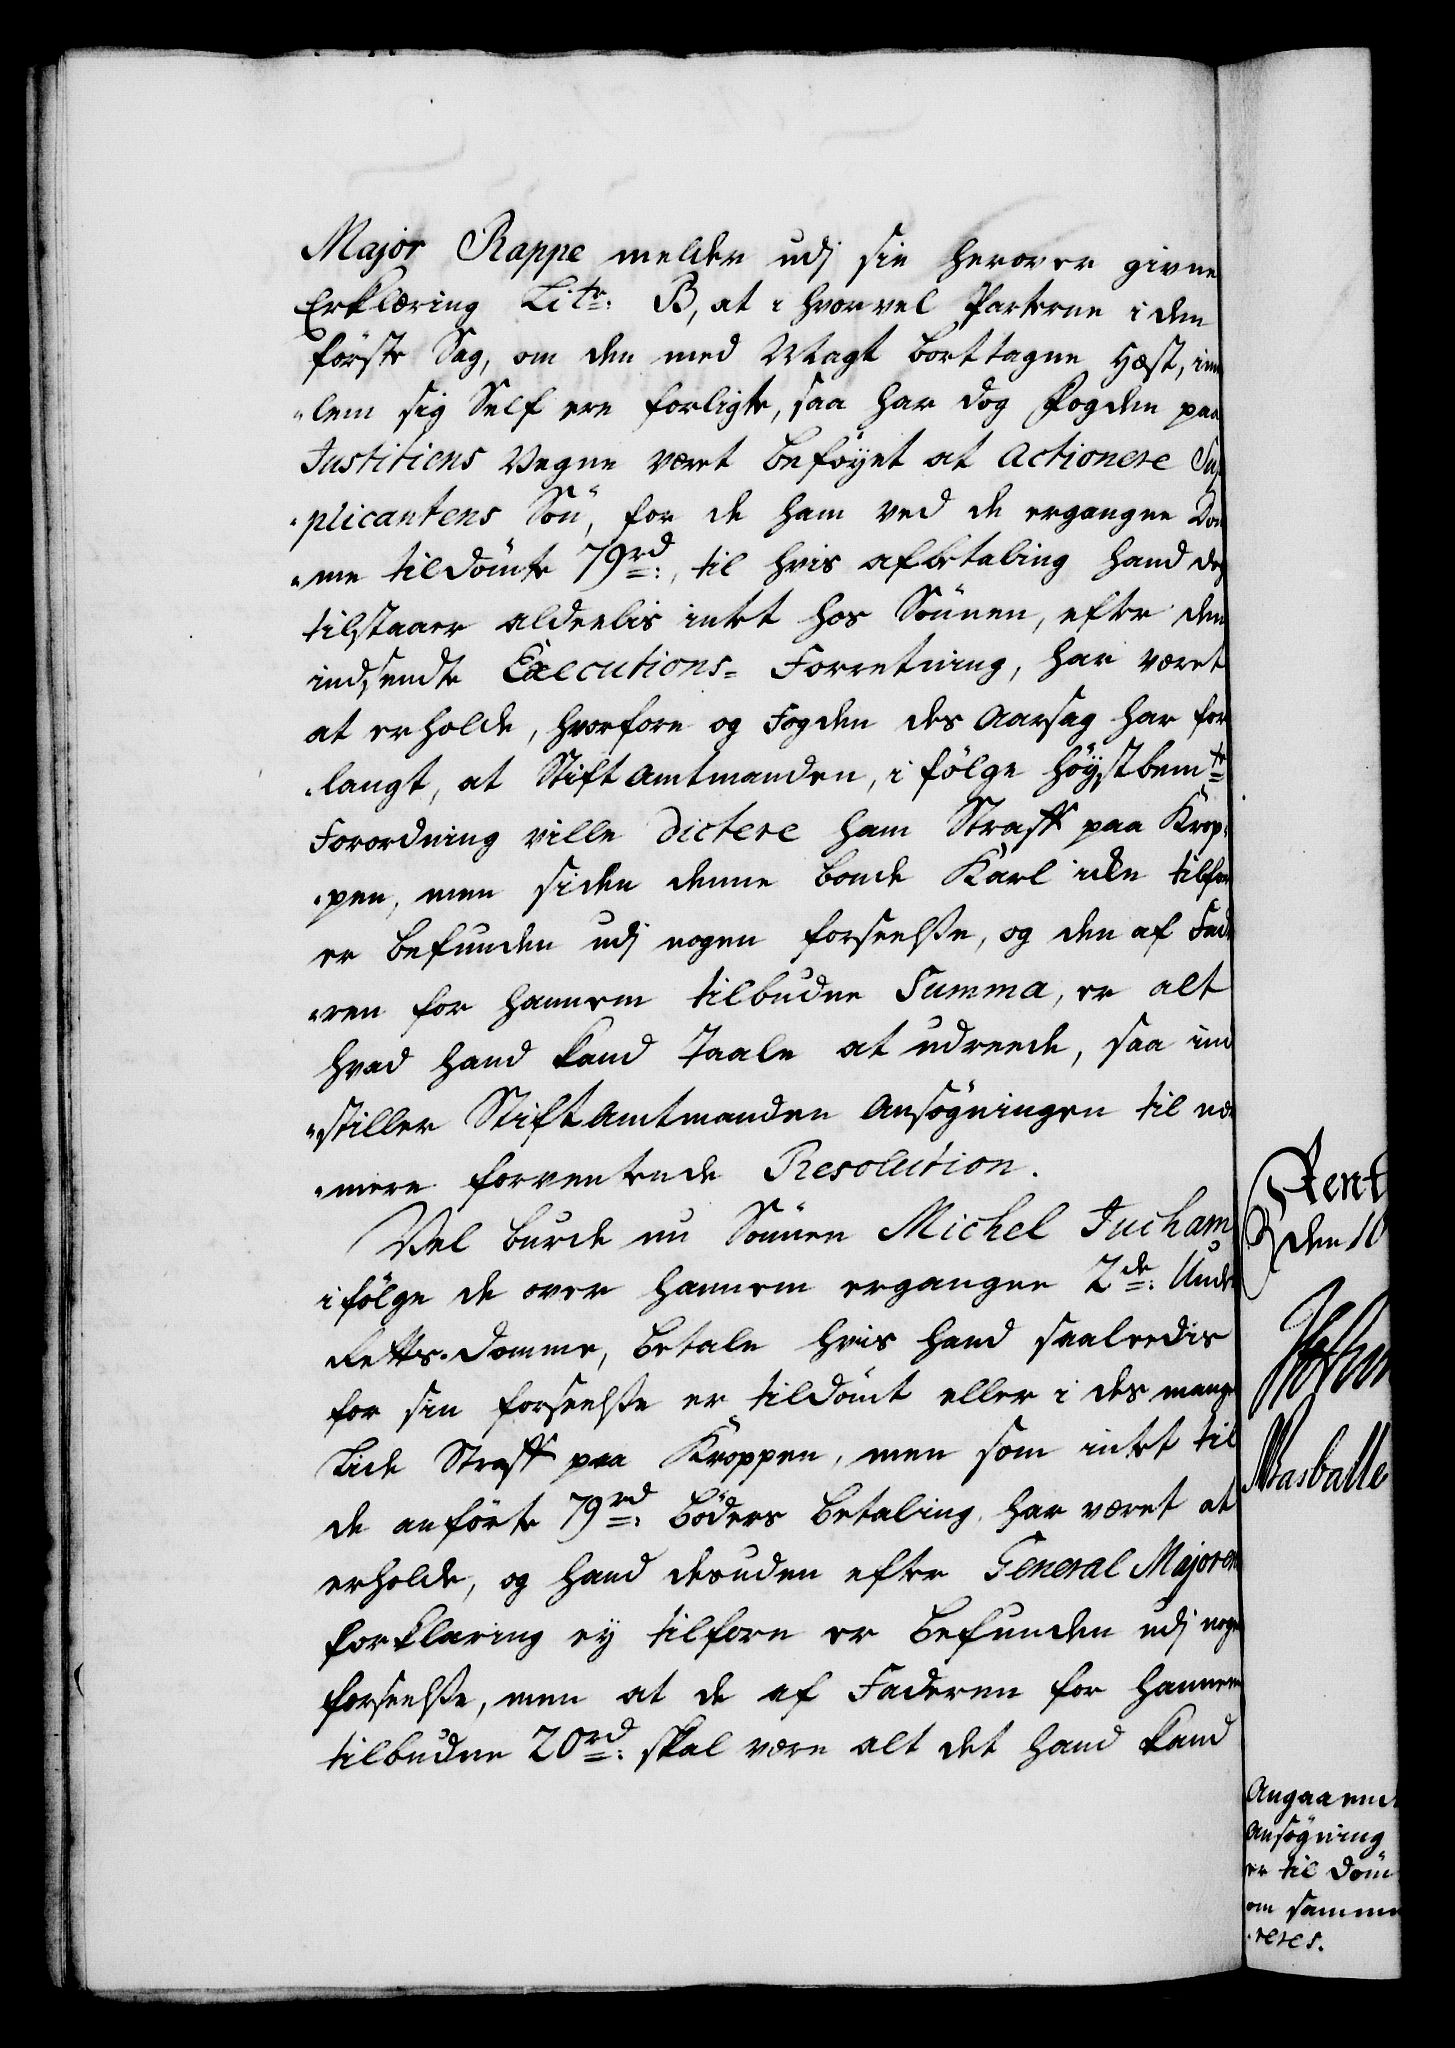 Major Rappe melder udj sin herover givne
Erklæring Litr: B, at i hvorvel Parterne i den
förste Sag, om den med Magt borttagne Hæst, im¬
"lem sig Self ere forligte, saa har dog Fogden paa
Justitiens Vegne været beföyet at Actionere Sup¬
"plicantens Sön, for de ham ved de ergangne Dom¬
"me tildömte 79rd:, til hvis afbetaling hand des
tilstaaer aldeelis intet hos Sönnen, efter den
indsendte Executions= Forretning, har været
at erholde, hvorfore og Fogden des Aarsag har for¬
"langt, at Stift Amtmanden, i fölge höystbemte
Forordning ville dictere ham Straff paa Krop¬
"pen, men siden denne bonde Karl icke tilforn
er befunden udj nogen forseelsse, og den af Fade¬
"ren for hannem tilbudne Summa, er alt
hvad hand kand taale at udreede, saa ind
"stiller Stift Amtmanden Ansögningen til nær¬
"mere forventende Resolution.
Vel burde nu Sönnen Michel Jucham
i fölge de over hannem ergangne 2de: Under
Retts-Domme, betale hvis hand saaleedis
for sin forseelsse er tildömt eller i des mangel
Lide Straff paa Kroppen, men som intet til
de anförte 79rd: böders betaling har været at
erholde, og hand desuden efter General Majorens
forklaring ey tilforn er befunden udj nogen
forseelsse, men at de af Faderen for hannem
tilbudne 20rd: skal være alt det hand kand
Rent
den 10
Angaaend
Ansögning
er til döm
om samme
"reres.